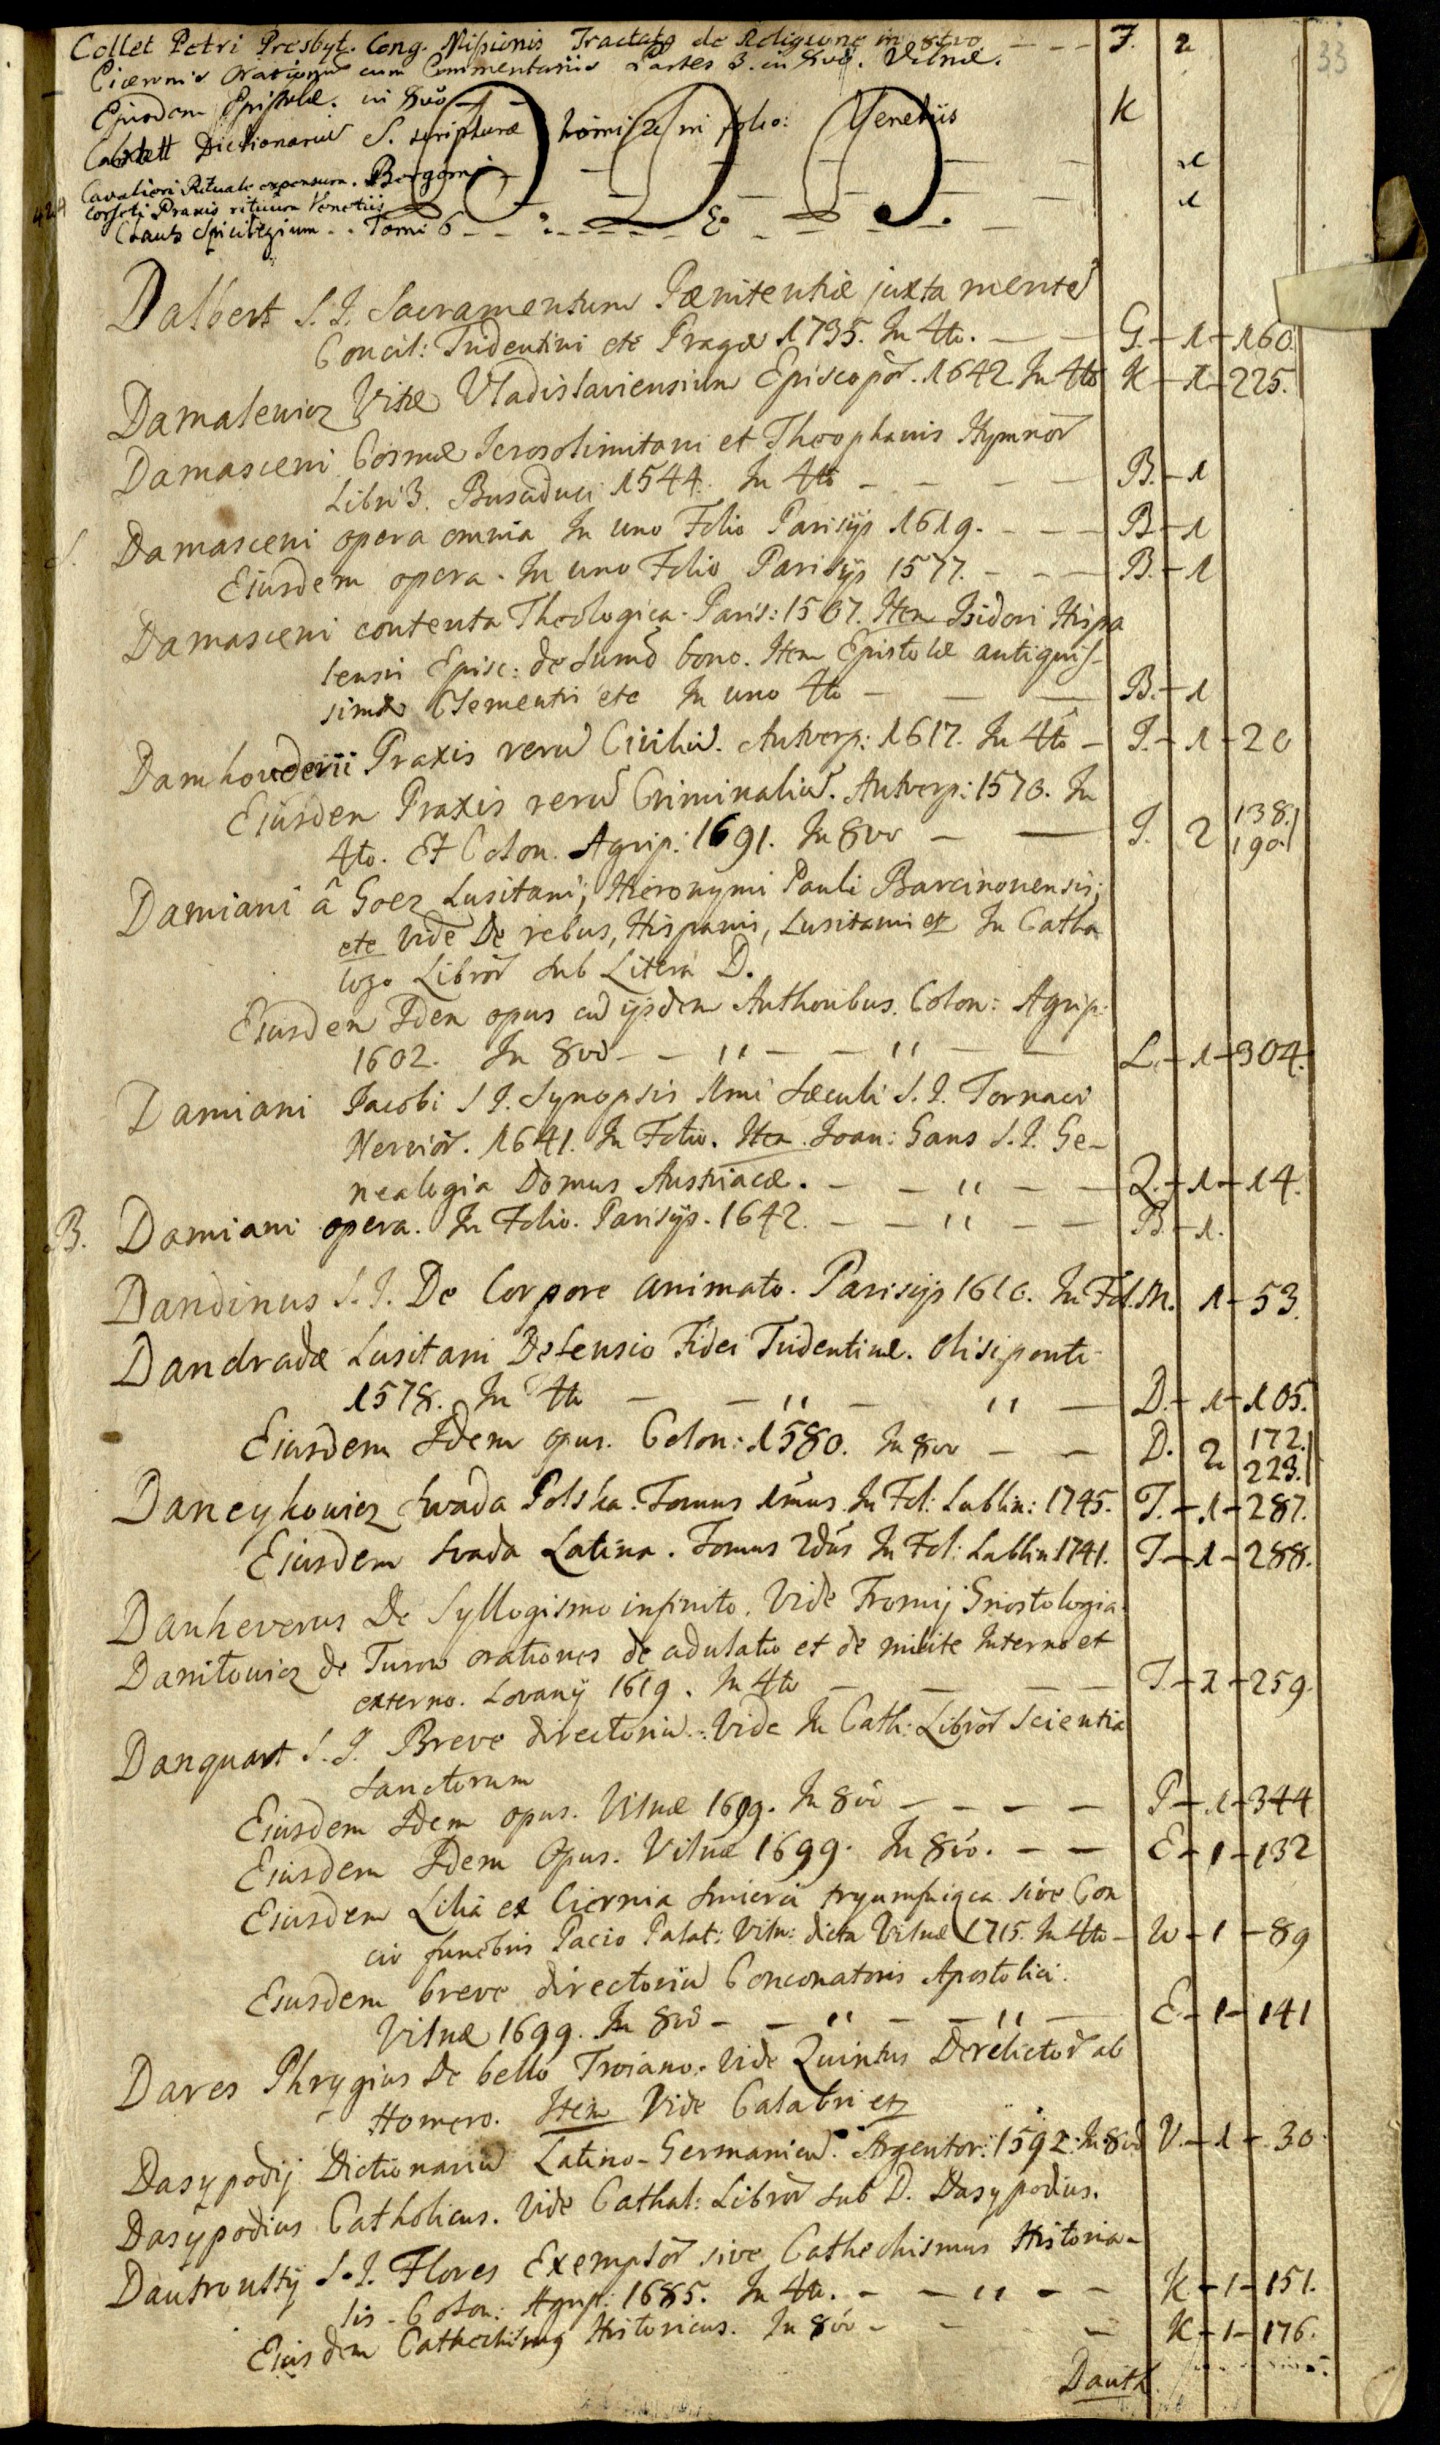 33
Collet Petri Presbyt. Cong. Missionis Tractats de Religione in 8tvo - - - J. 2
Ciceronis Orationũ cum Commentariis Partes 3. in 8vo. Vilnæ.
Ejusdem Epistolæ. in 8vo - -
Dictionariũ S. scripturæ tomi 2 in folio: Venetiis K
Cavalieri Rituale expensum. Bergomi - - 1
Praxis rituum Venetiis - - 1
Spicilegium - . Tomi 6 - -
D D D.
Dalbert S.J. Sacramentum Pænitentiæ juxta mentẽ
Concil: Tridentini etc Pragæ 1735. In 4to. - - G. - 1 - 160.
Damalewicz Vitæ Vladislaviensium Episcopõr. 1642 In 4to K - 1 - 225.
Damasceni Cosmæ Ierosolimitani et Theophanis Hymnõr
Libri 3. 1544. In 4to - - - - B. - 1
Damasceni opera omnia In uno Folio Parisijs 1619. - - - B - 1
Ejusdem opera. In uno Folio Parisijs 1577. - - - B. - 1
Damasceni contenta Theologica. Paris: 1507. Item Isidori Hispa
lensis Episc: de Sumõ bono. Item Epistolæ antiquis-
simæ Clementis etc In uno 4to - - - B. - 1
Damhouderii Praxis rerũ Civiliũ. Antverp: 1617. In 4to - J. - 1 - 20
Ejusdem Praxis rerũ Criminaliũ. Antverp: 1570. In
4to. Et Colon. Agrip: 1691. In 8vo - - J. 2 138. 190.
Damiani â Goez Lusitani; Hieronymi Pauli Barcinonensis;
etc Vide De rebus, Hispanis, Lusitanis etz In Catha
logo Librõr sub Litera D.
Ejusdem Idem opus cũ ijsdem Authoribus. Colon: Agrip:
1602. In 8vo - - ,, - - ,, - - L. - 1 - 304.
Damiani Jacobi S J. Synopsis 1mi Sæculi S. J. Tornaci
Nerviõr. 1641. In Folio. Item Joan: Gans S. J. Ge-
nealogia Domus Austriacæ. - - ,, - - Q. - 1 - 14.
B. Damiani opera. In Folio. Parisijs. 1642. - - ,, - - B - 1.
Dandinus S. J. De Corpore animato. Parisijs 1610. In Fol. M. 1 - 53.
Dandradæ Lusitani Defensio Fidei Tridentinæ. Olisiponti
1578. In 4to - - ,, - ,, - D. - 1 - 105.
Ejusdem Idem opus. Colon: 1580. In 8vo - - D. 2 172. 223.
Daneykowicz Swada Polska. Tomus 1mus In Fol: Lublin: 1745. T. - 1 - 287.
Ejusdem Svada Latina. Tomus 2dus In Fol: Lublin 1741. T - 1 - 288.
Danheverus De Syllogismo infinito. Vide Gnostologia.
Daniłowicz de Turow orationes de adulatio et de milite Interno et
externo. Lovanij 1619. In 4to - - - - T - 1 - 259.
Danquart S. J. Breve directoriũ. Vide In Cath: Librõr Scientia
Sanctorum
Ejusdem Idem opus. Vilnæ 1699. In 8vo - - - - P - 1 - 344
Ejusdem Idem Opus. Vilnæ 1699. In 8vo. - - E - 1 - 132
Ejusdem Lilia ex Ciernia Smierci tryumfuiąca sive Con
cio funebris Pacio Palat: Viln: dicta Vilnæ 1715. In 4to - W - 1 - 89
Ejusdem breve directoriũ Concionatoris Apostolici.
Vilnæ 1699. In 8vo - - ,, - - ,, - E - 1 - 141
Dares Phrygius De bello Troiano. Vide Quintus Derelictõr ab
Homero. Item Vide Calabri etz
Dasypodij Dictionariũ Latino-Germanicũ. Argentor: 1592. In 8vo V. - 1 - 30.
Dasypodius Catholicus. Vide Cathal: Librõr sub D. Dasypodius.
Dautroultij S.J. Flores Exemplõr sive Cathechismus Historia-
lis. Colon: Agrip: 1685. In 4to. - - ,, - - K - 1 - 151.
Ejusdem Cathechismus Historicus. In 8vo - - - - K - 1 - 176.
Dauth.